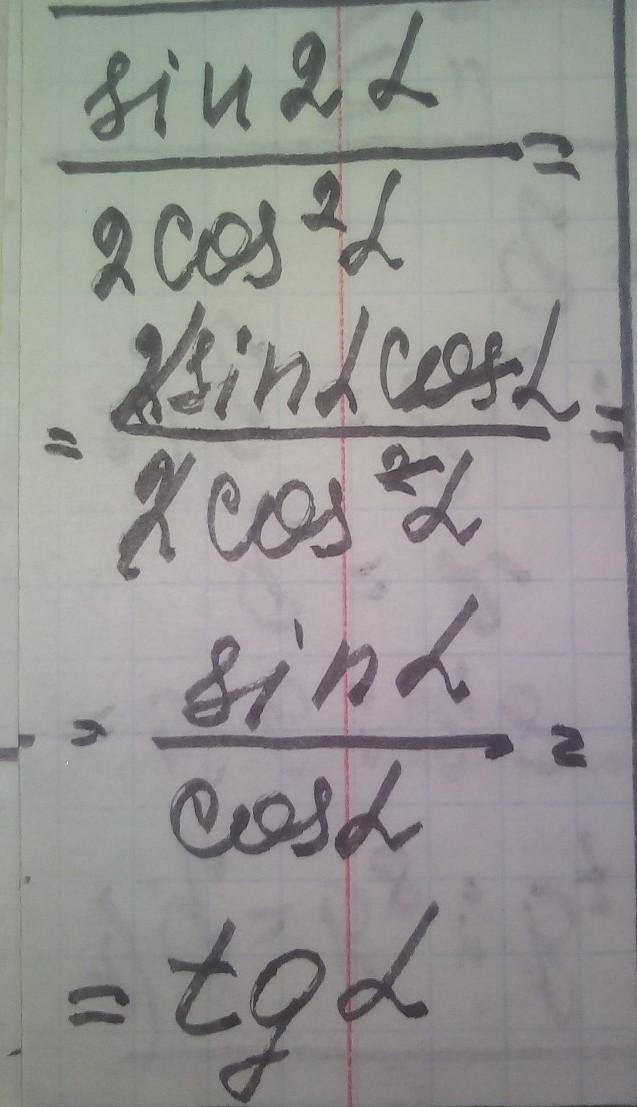 sin2α
=
2cos²α
2sinαcosα
= =
2cos²α
sinα
= =
cosα
= tgα